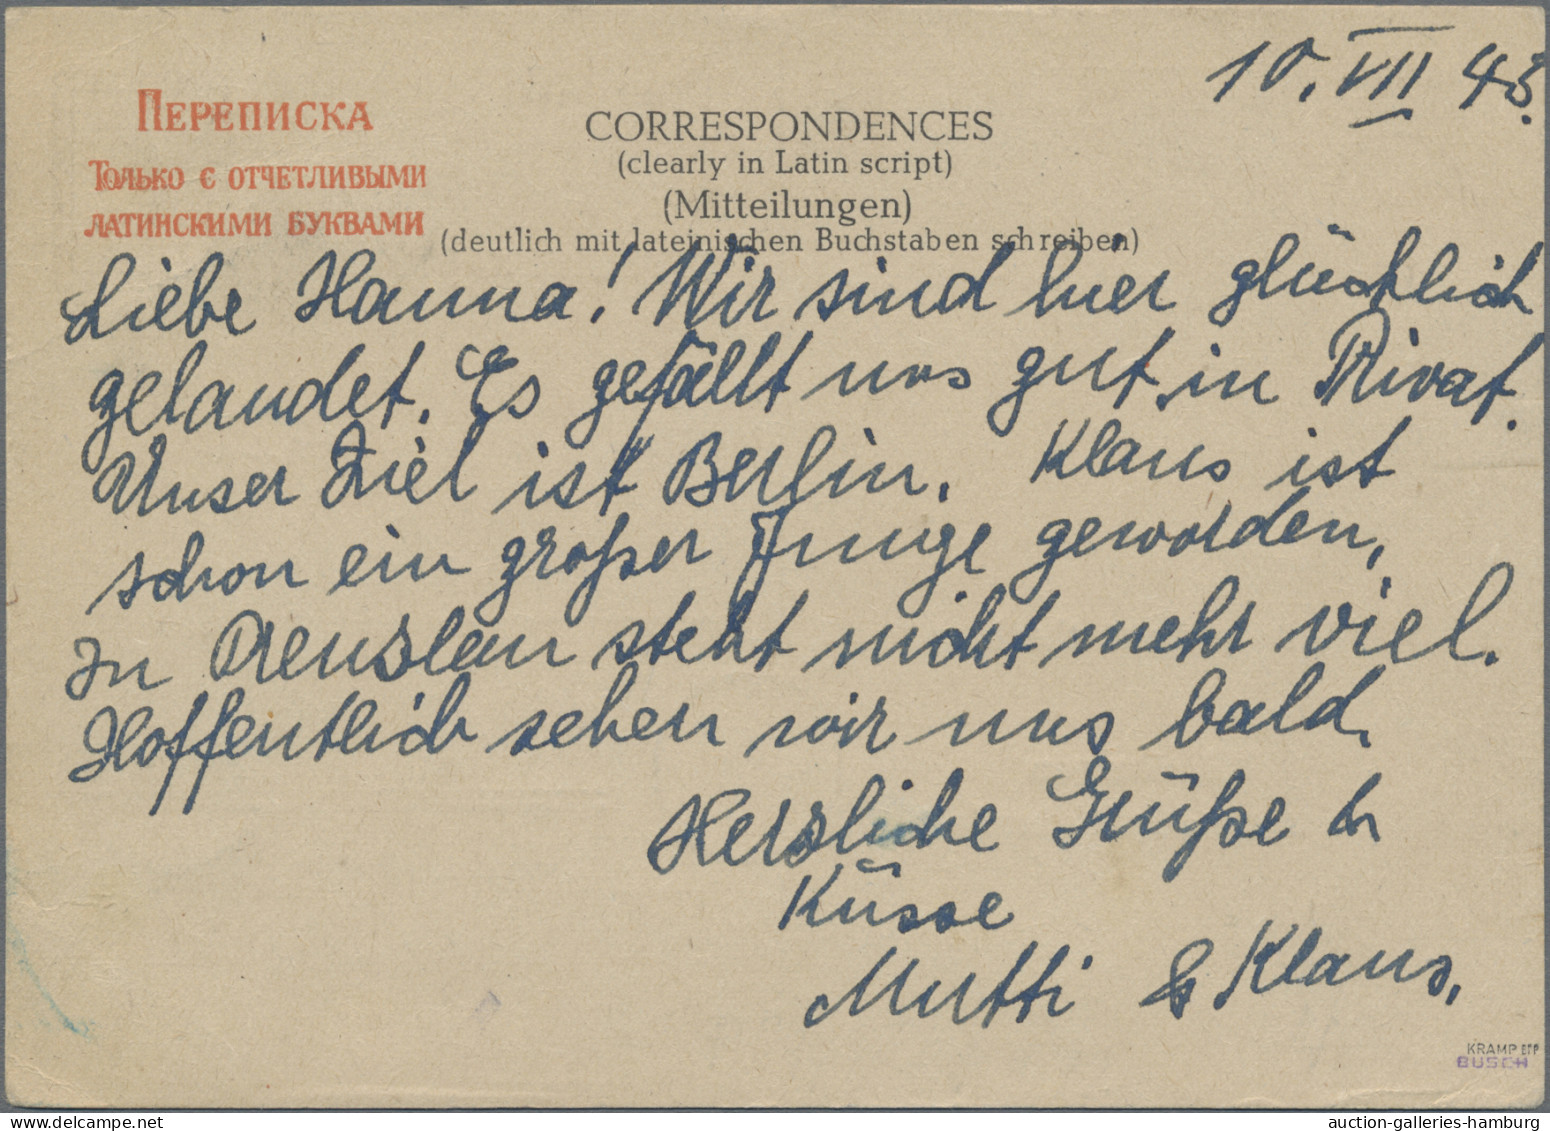 10. VII 48.
ПЕРЕПИСКА
Только с отчетливыми
латинскими буквами
CORRESPONDENCES
(clearly in Latin script)
(Mitteilungen)
(deutlich mit lateinischen Buchstaben schreiben)
Liebe Hanna! Wir sind hier glücklich
gelandet. Es gefällt uns gut in Privat.
Unser Ziel ist Berlin. Klaus ist
schon ein großer Junge geworden,
In Prenzlau steht nicht mehr viel.
Hoffentlich sehen wir uns bald.
Herzliche Grüße &
Küsse
Mutti & Klaus.
KRAMP BPP
BUSCH
auction-galleries-hamburg